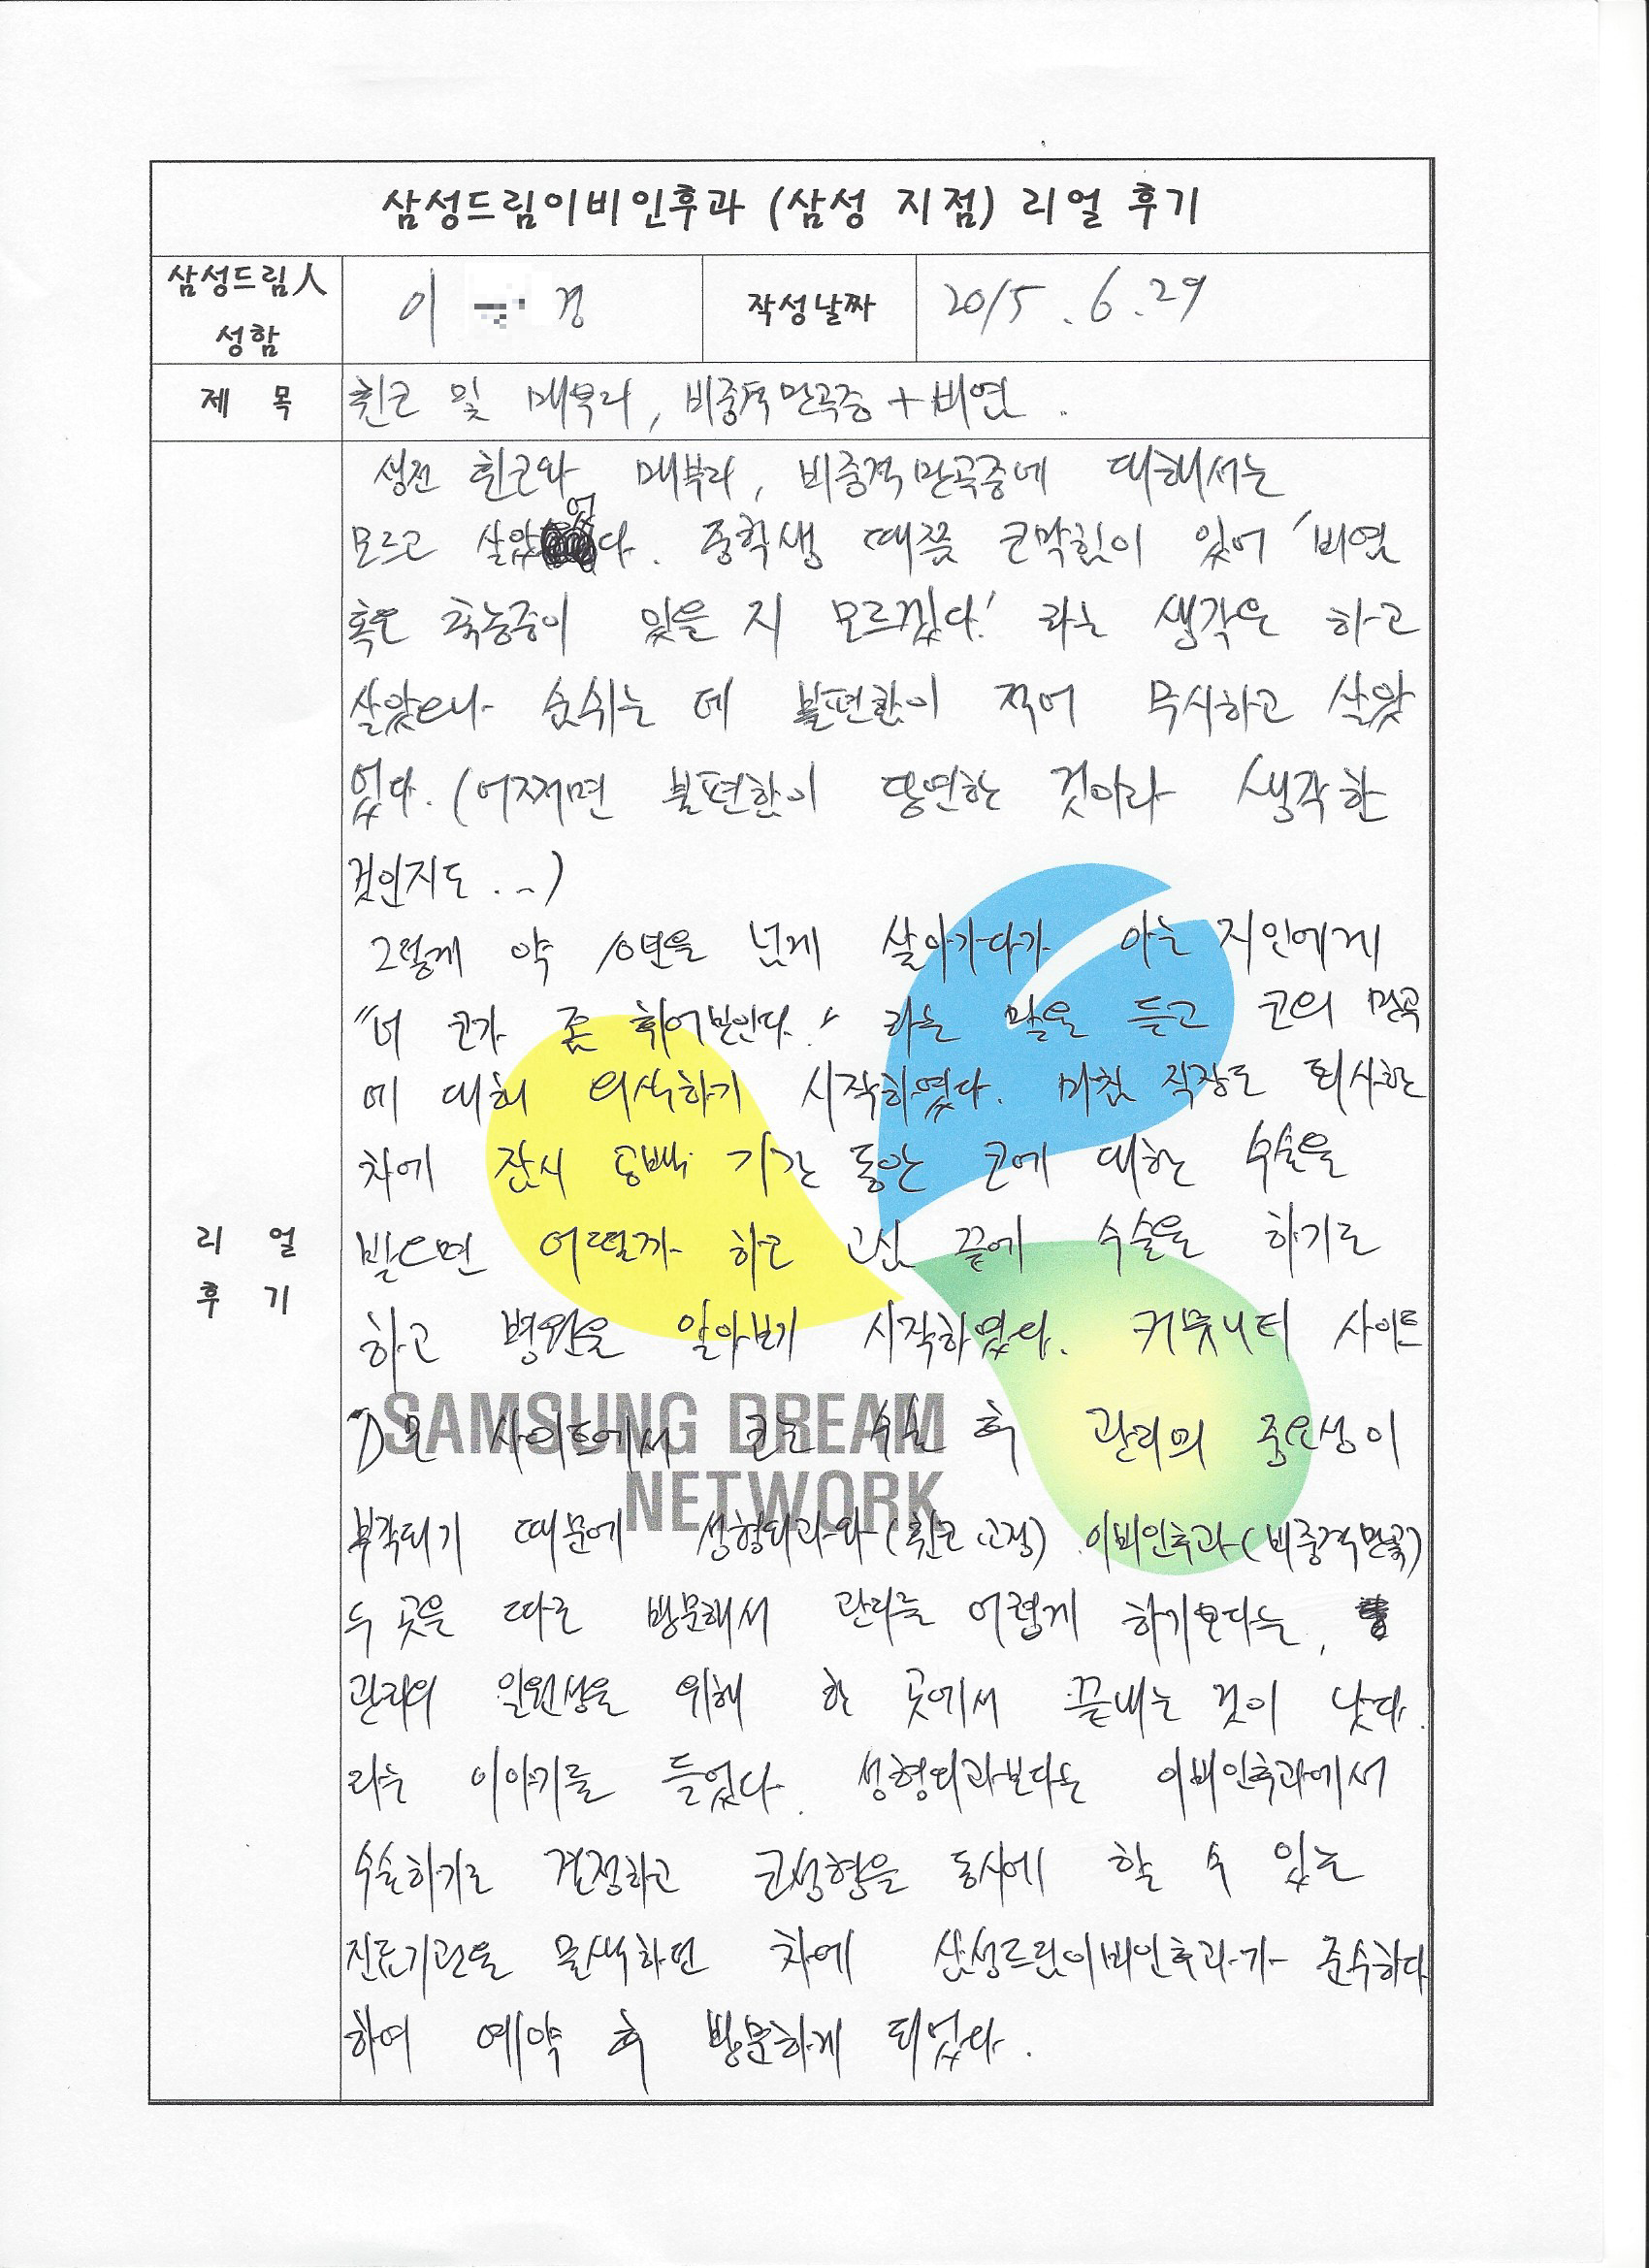 삼성드림이비인후과 (삼성 지점) 리얼 후기
삼성드림人 성함
이 경
작성날짜
2015. 6. 29
제 목
휜코 및 매부리, 비중격만곡증 + 비염.
생전 휜코와 매부리, 비중격만곡증에 대해서는
모르고 살았었다. 중학생 때쯤 코막힘이 있어 '비염
혹은 축농증이 있을 지 모르겠다.' 라는 생각은 하고
살았으나 숨쉬는 데 불편함이 적어 무시하고 살았
었다. (어쩌면 불편함이 당연한 것이라 생각한
것인지도...)
그렇게 약 10년을 넘게 살아가다가 아는 지인에게
"너 코가 좀 휘어보인다." 라는 말을 듣고 코의 만곡
에 대해 의식하기 시작하였다. 마침 직장도 퇴사한
차에 잠시 공백 기간 동안 코에 대한 수술을
받으면 어떨까 하고 고심 끝에 수술을 하기로
하고 병원을 알아보기 시작하였다. 커뮤니티 사이트
D모 사이트에서 코는 수술 후 관리의 중요성이
부각되기 때문에 성형외과와(휜코 교정) 이비인후과(비중격만곡)
두 곳을 따로 방문해서 관리를 어렵게 하기보다는,
관리의 일원성을 위해 한 곳에서 끝내는 것이 낫다.
라는 이야기를 들었다. 성형외과보다는 이비인후과에서
수술하기로 결정하고 코성형을 동시에 할 수 있는
진료기관을 물색하던 차에 삼성드림이비인후과가 준수하다
하여 예약 후 방문하게 되었다.
리 얼
후 기
SAMSUNG DREAM
NETWORK